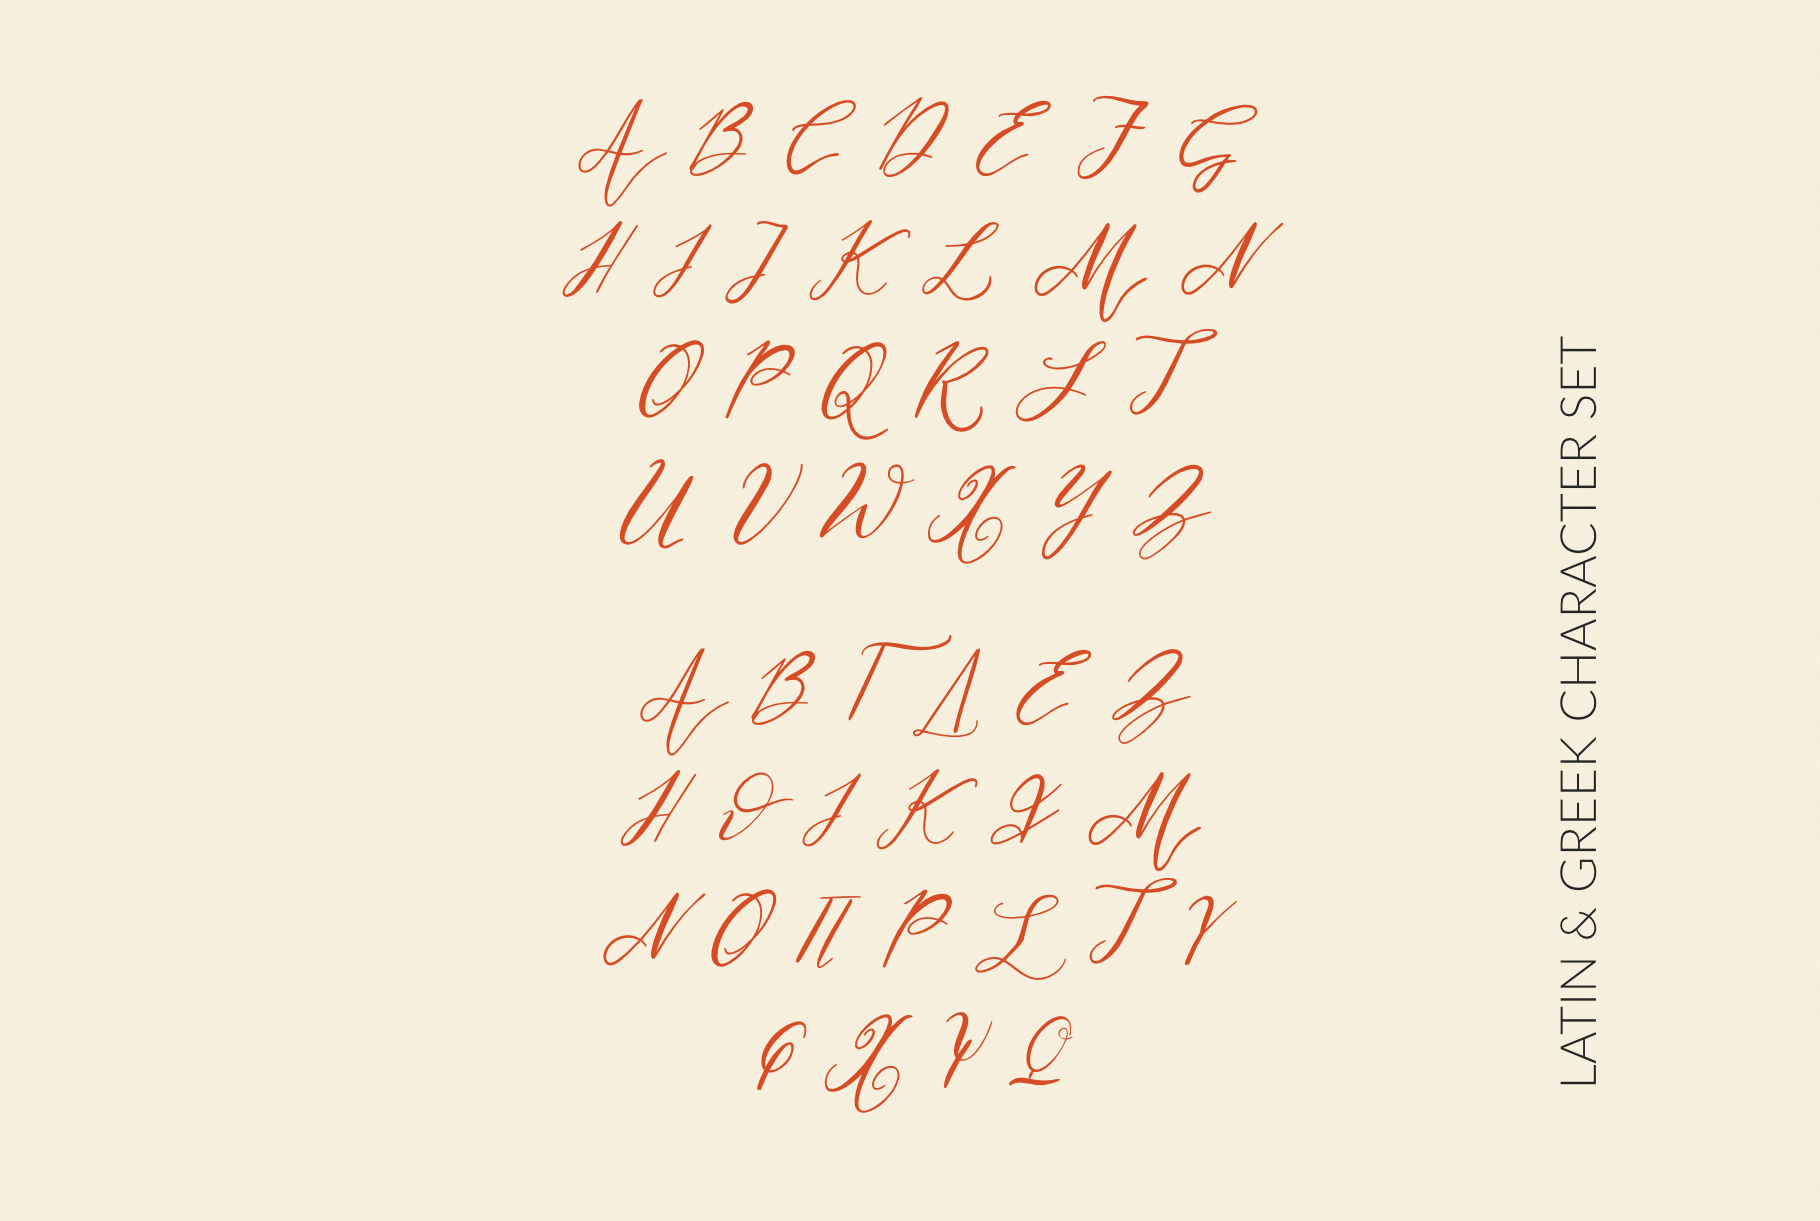 A B C D E F G
H I J K L M N
O P Q R S T
U V W X Y Z
Α Β Γ Δ Ε Ζ
Η Θ Ι Κ Λ Μ
Ν Ο Π Ρ Σ Τ Υ
Φ Χ Ψ Ω
LATIN & GREEK CHARACTER SET